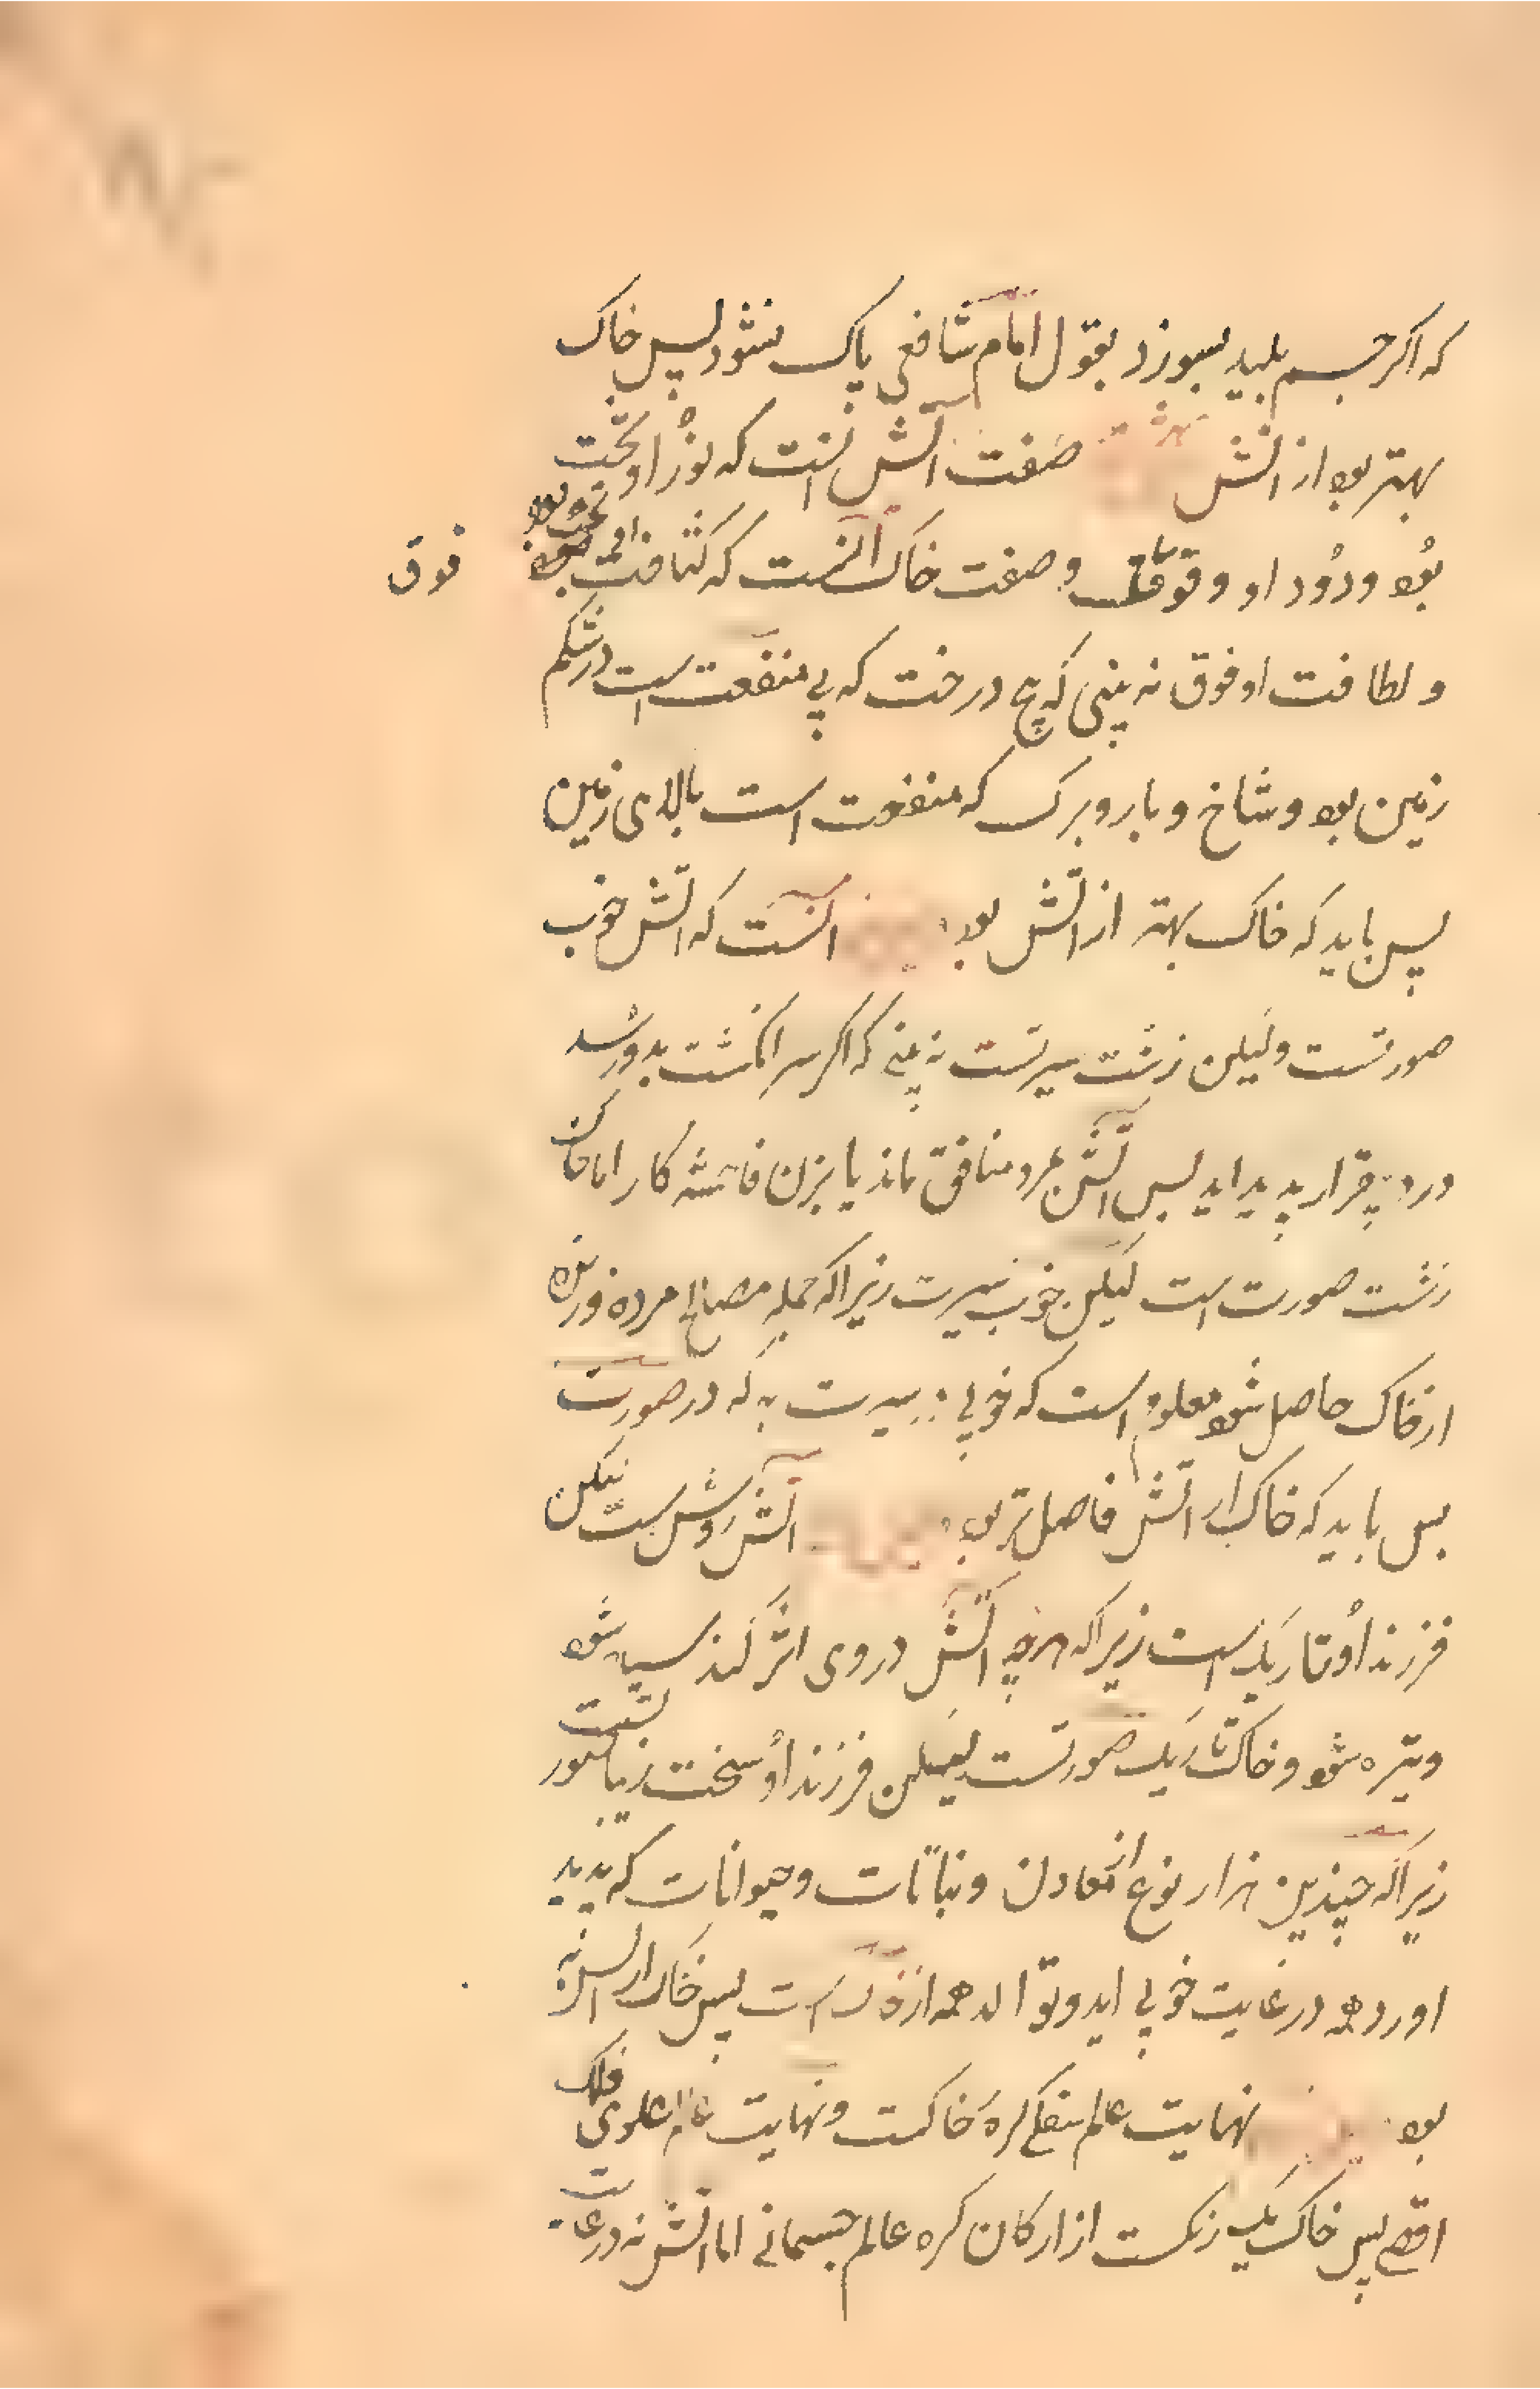 که اکر جسم پلید بسوزد بقول امام شافعی پاک نشود پس خاک
بهتر بود از اتش صفت آتش انست که نور او تحت
بود و دود او و فوق و صفت خاک انست که کثافت او تحت بود
فوق
و لطافت او فوق نه بینی که بیخ درخت که بی منفعت است در شکم
زمین بود و شاخ و بار و برک که منفعت است بالای زمین
پس باید که خاک بهتر از اتش بود انست که اتش خوب
صورتست ولیکن زشت سیرتست نه بینی که اکر سر انکشت بدو رسد
درد بیقرار پدید اید پس اتش بمرد منافق ماند یا بزن فاحشه کار اما خاک
زشت صورت است لیکن خوب سیرت زیراکه جمله مصالح مرده و زنده
از خاک حاصل شود معلوم است که خوبی در سیرت به که در صورت
پس باید که خاک از اتش فاضل تر بود اتش روشن است لیکن
فرزند او تاریک است زیراکه هرچه اتش در وی اثر کند سیاه شود
و تیره شود و خاک تاریک صورتست لیکن فرزند او سخت زیبا
زیراکه چندین هزار نوع از معادن و نباتات و حیوانات که پدید
اورد همه در غایت خوبی اید و توالد همه از خاک است پس خاک از اتش به
بود نهایت عالم سفلی کره خاکست و نهایت عالم علوی فلک
اقصی پس خاک یک رکنست از ارکان کره عالم جسمانی اما اتش نه در غایت